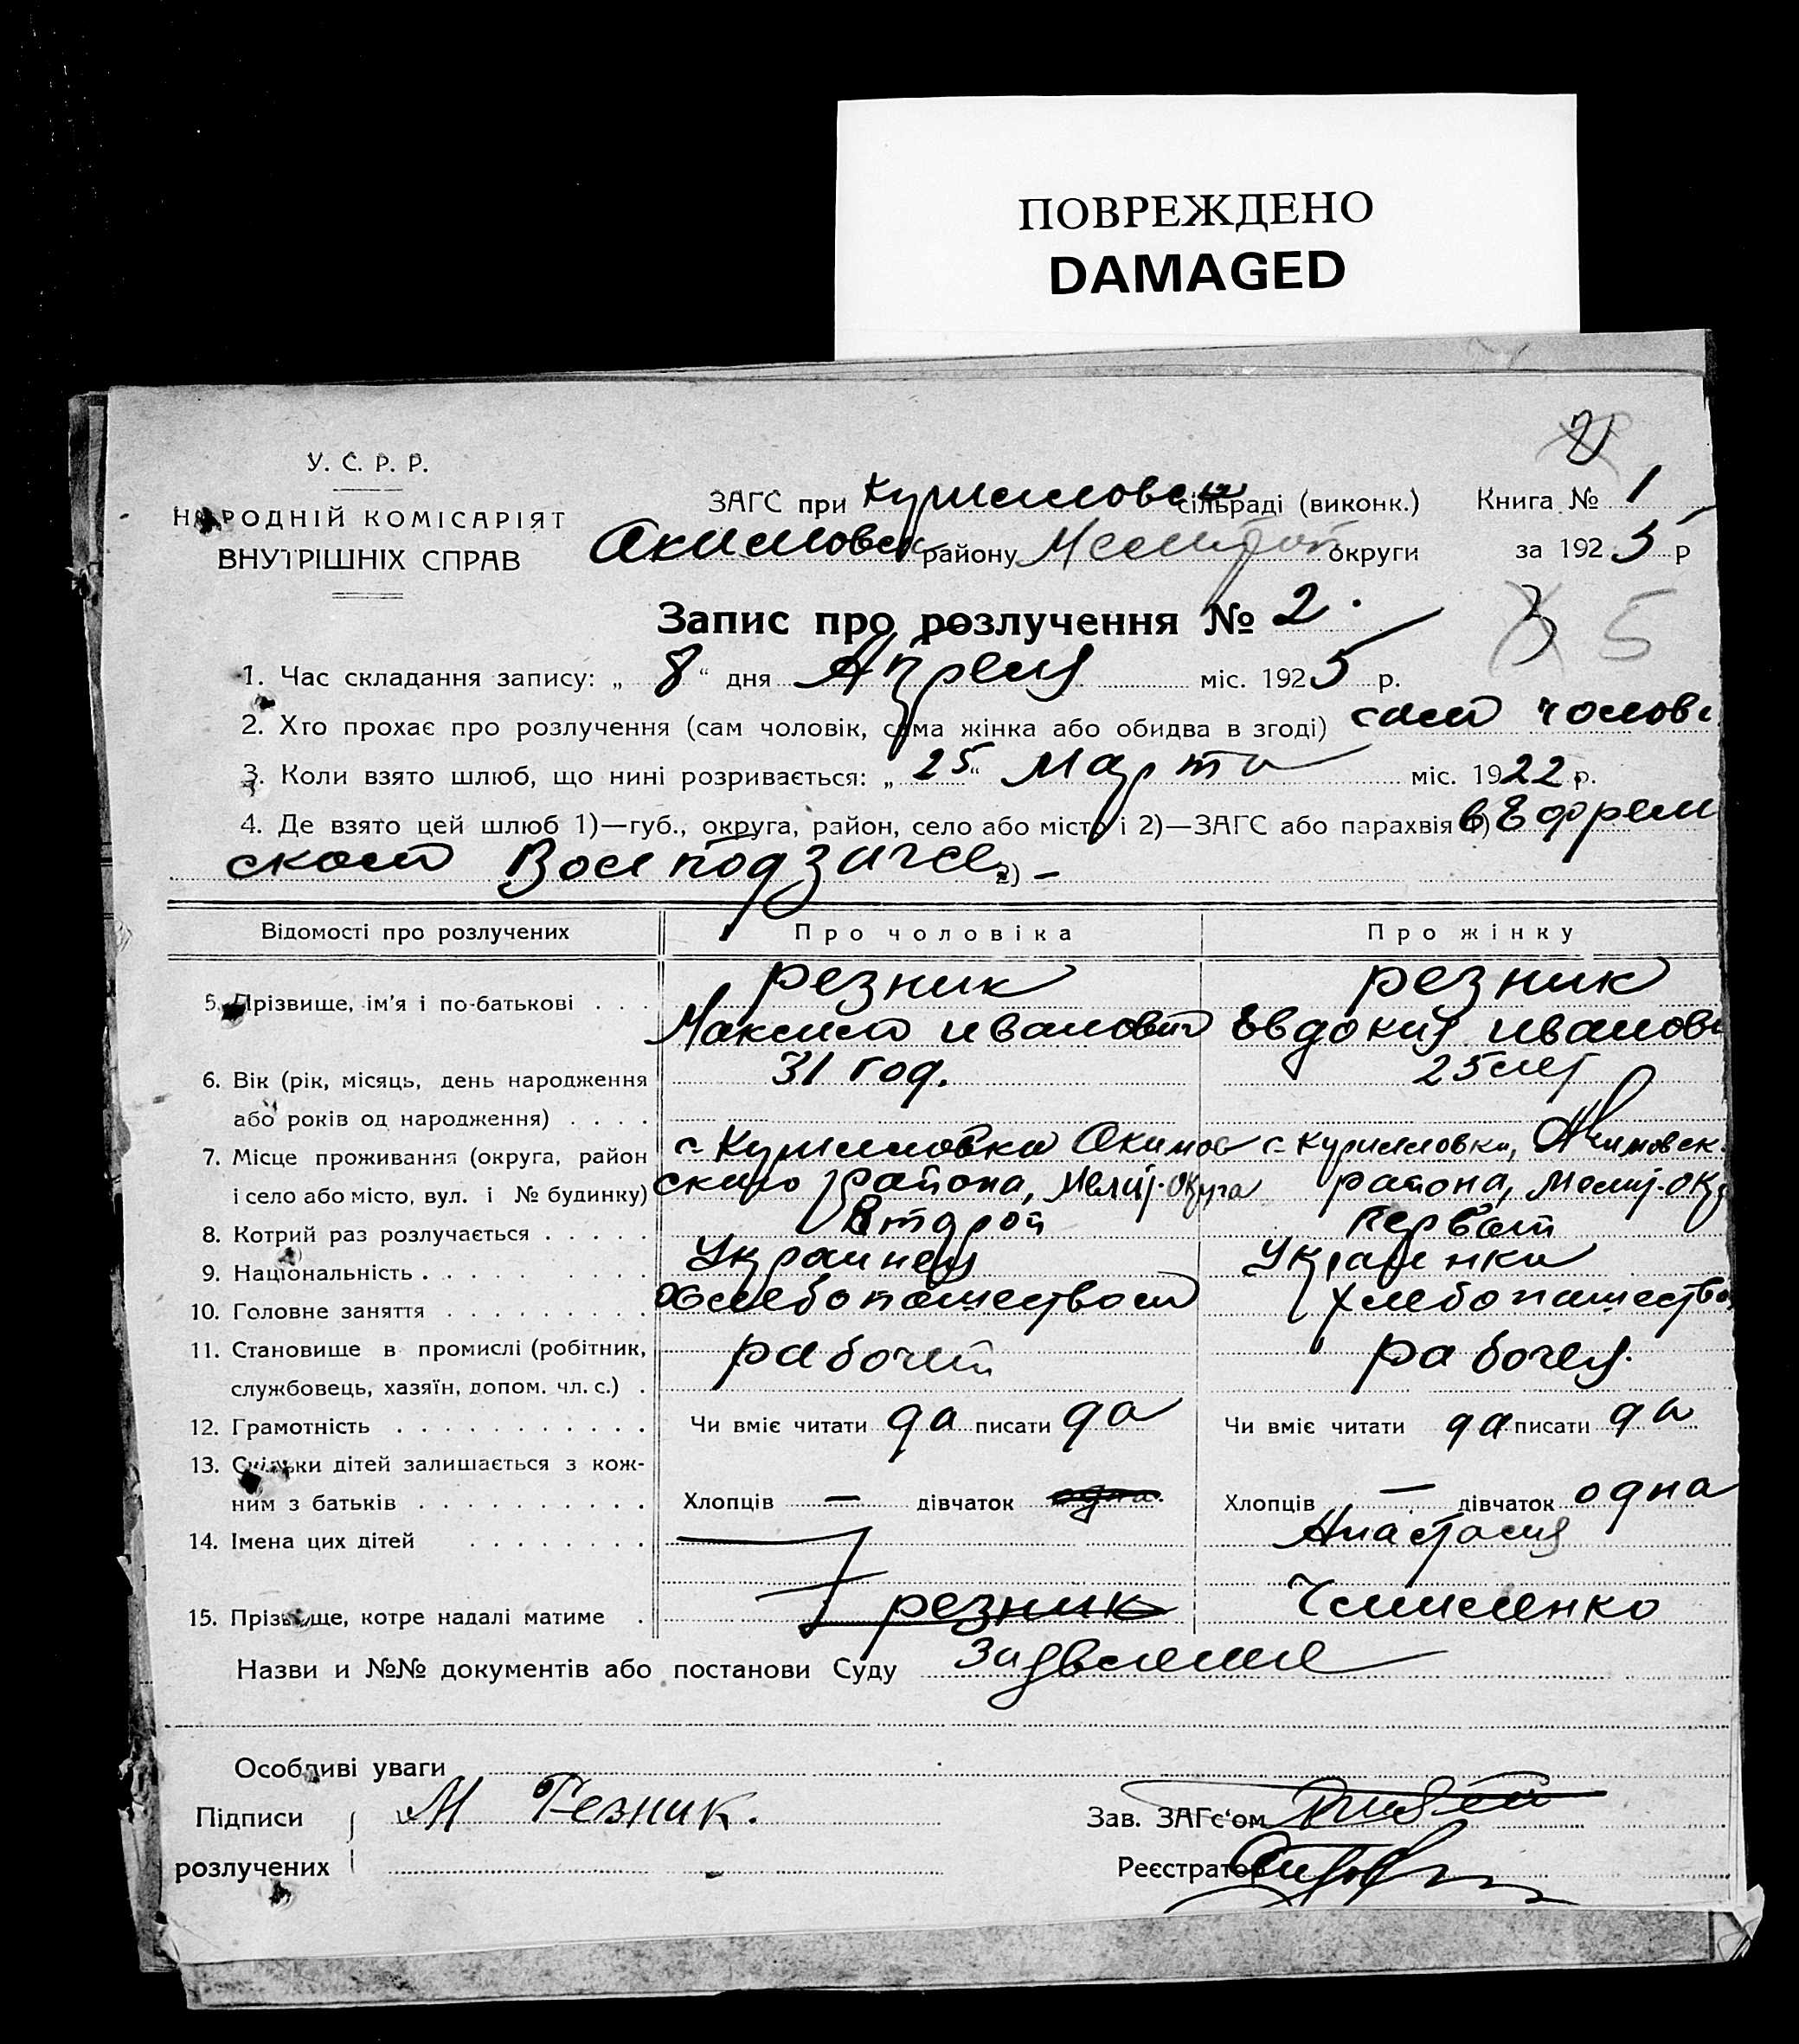 ПОВРЕЖДЕНО
DAMAGED
У. С. Р. Р.
НАРОДНІЙ КОМІСАРІЯТ
ВНУТРІШНІХ СПРАВ
ЗАГС при сільраді (виконк.) Книга № 1
Акимовск району округи за 1925 р
Запис про розлучення № 2.
5
1. Час складання запису: „ 8 “ дня Апреля міс. 1925 р.
2. Хто прохає про розлучення (сам чоловік, сама жінка або обидва в згоді) сам чолові
3. Коли взято шлюб, що нині розривається: „ 25 “ Марта міс. 1922 р.
4. Де взято цей шлюб 1)—губ., округа, район, село або місто і 2)—ЗАГС або парахвія 1) в Ефрем
ском Вол подзагсе 2) —
Відомості про розлучених Про чоловіка Про жінку
5. Прізвище, ім'я і по-батькові . . . резник резник
Максим иванович Евдокия иванов
6. Вік (рік, місяць, день народження 31 год. 25 лет
або років од народження) . . . .
7. Місце проживання (округа, район с. Акимов с. Акимовск.
і село або місто, вул. і № будинку) скаго района, Мелит. округа района, Мелит. окр
8. Котрий раз розлучається . . . . . Второй Первый
9. Національність . . . . . . . . Украинец Украинка
10. Головне заняття . . . . . . . . . Хлебопашеством Хлебопашество
11. Становище в промислі (робітник, рабочий рабочая.
службовець, хазяїн, допом. чл. с.) .
12. Грамотність . . . . . . . . . . . Чи вміє читати да писати да Чи вміє читати да писати да
13. Скільки дітей залишається з кож-
ним з батьків . . . . . . . . . . Хлопців — дівчаток одна. Хлопців — дівчаток одна
14. Імена цих дітей . . . . . . . . — Анастасия
15. Прізвище, котре надалі матиме . резник
Назви и №№ документів або постанови Суду Заявление
Особливі уваги
Підписи М Резник. Зав. ЗАГс‘ом
розлучених Реєстратор